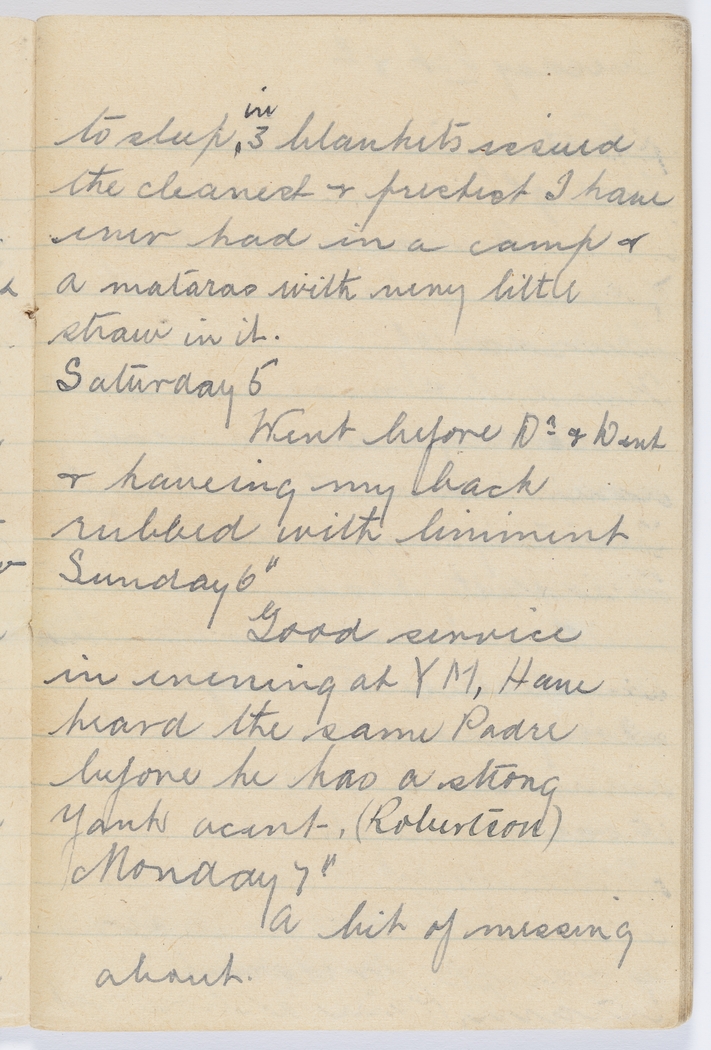 to sleep, in 3 blankets issued
the cleanest & freshest I have
ever had in a camp &
a mataras with very little
straw in it.
Saturday 5
Went before Dr & Dent
& haveing my back
rubbed with liniment
Sunday 6"
Good service
in evening at YM, Have
heard the same Padre
before he has a strong
Yank acent, (Robertson)
Monday 7"
A bit of messing
about.